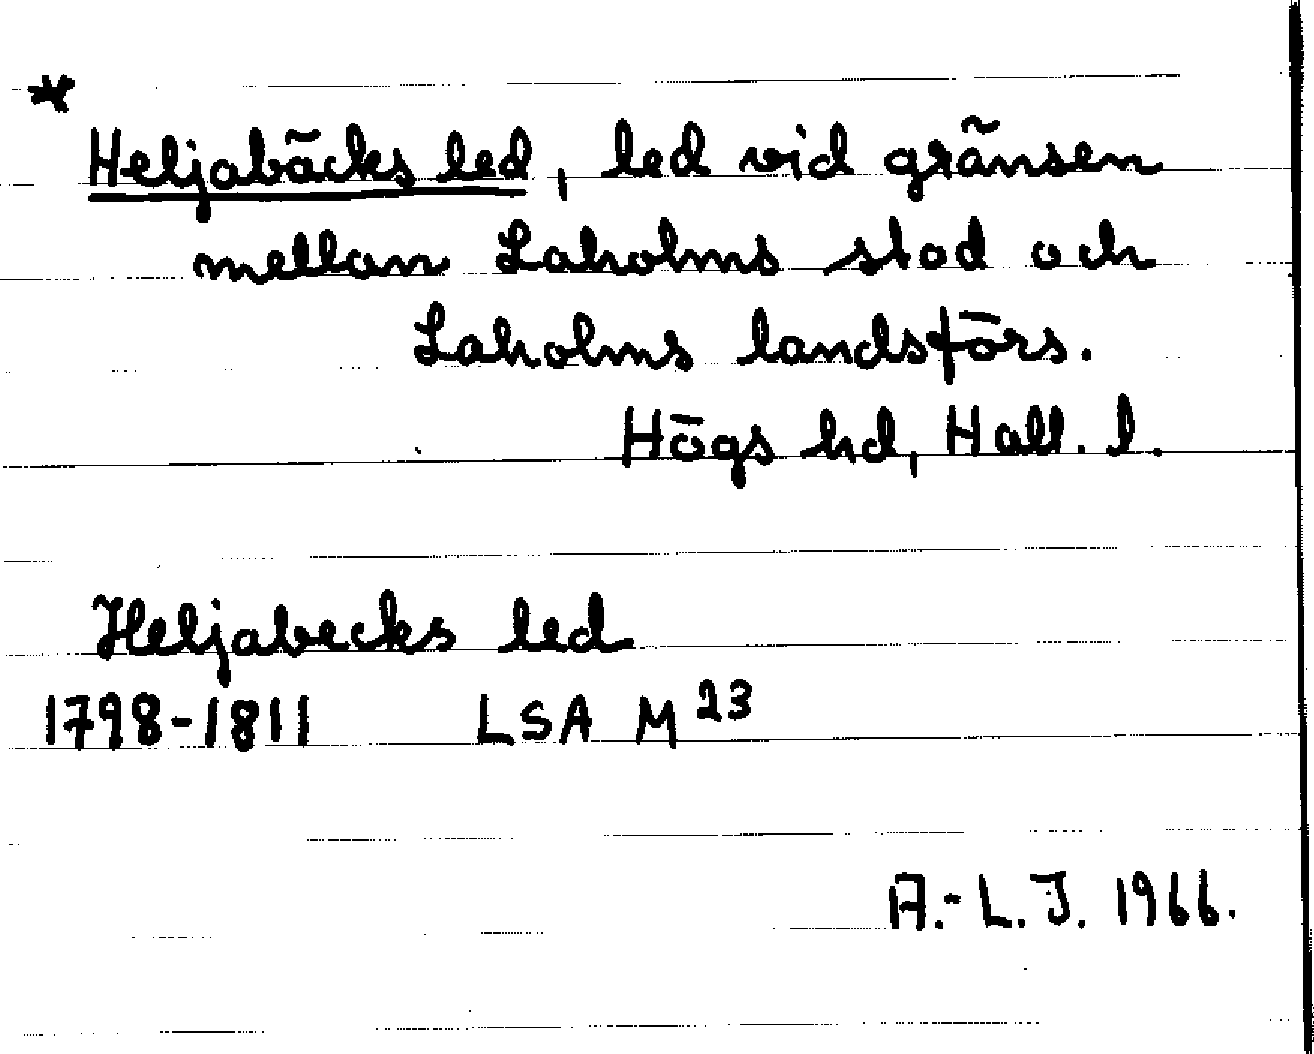 *
Heljabäcks led, led vid gränsen
mellan Laholms stad och
Laholms landsförs.
Högs hd, Hall. l.
Heljabecks led
1798-1811 LSA M 23
A.-L.J. 1966.